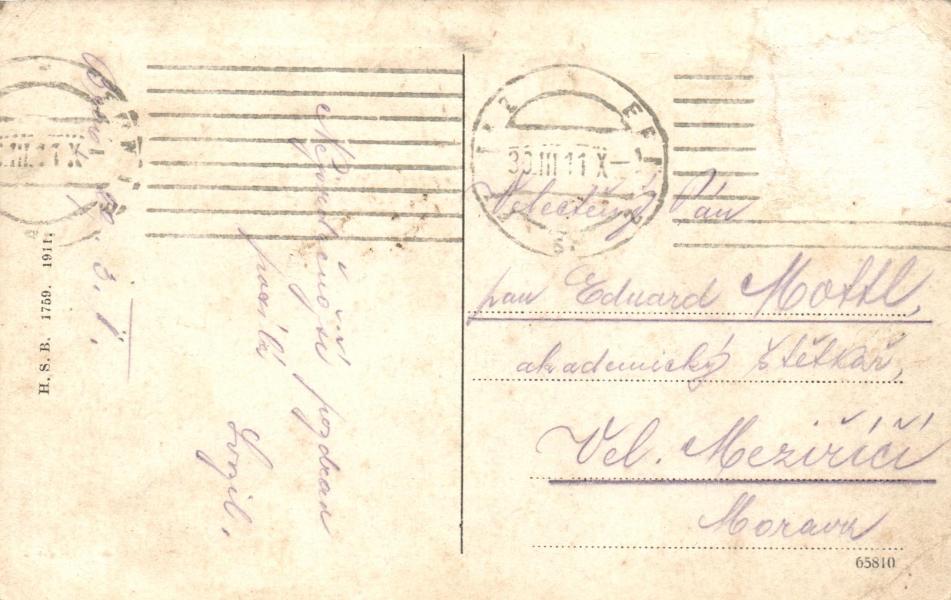 H. S. B. 1759. 1911.
30.III 11 X
Nejsrdečnější pozdrav
posílá
Velectěný Pán
pan Eduard Mottl,
akademický štětkař,
Vel. Meziříčí
Morava
65810